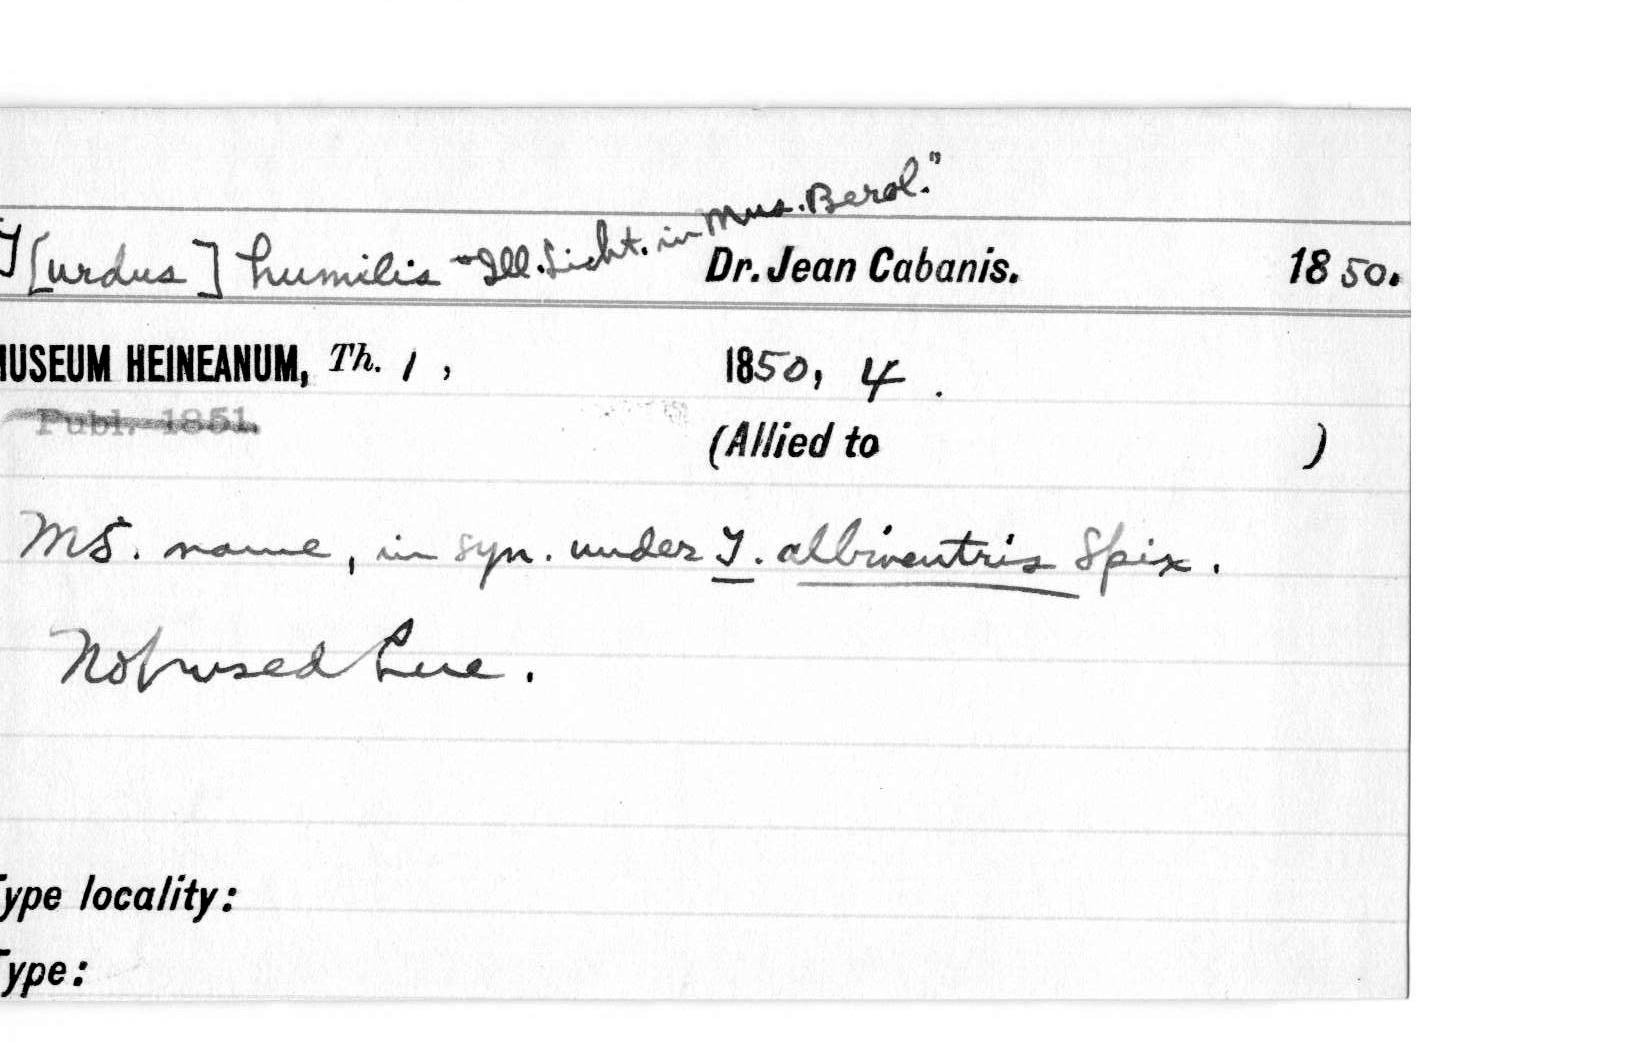 T[urdus] humilis "Ill. Licht. in Mus. Berol." Dr. Jean Cabanis. 1850.
MUSEUM HEINEANUM, Th. 1, 1850, 4.
Publ. 1851.
(Allied to )
MS. name, in syn. under T. albiventris Spix.
Not used here.
Type locality:
Type: